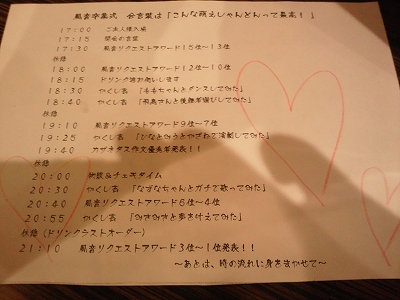 風音卒業式 合言葉は「こんな萌えしゃんどんって最高！」
17:00 ご主人様入場
17:15 開会の言葉
17:30 風音リクエストアワード15位～13位
休憩
18:00 風音リクエストアワード12位～10位
18:15 ドリンク追お伺いします
18:30 やくし吉 「ももちゃんとダンスしてみた」
18:40 やくし吉 「飛鳥さんと後継者選びしてみた」
休憩
19:10 風音リクエストアワード9位～7位
19:25 やくし吉
19:40 カザネタス作文優秀者発表！！
休憩
20:00 物販&チェキタイム
20:30 やくし吉 「なぎなちゃんとガチで歌ってみた」
20:40 風音リクエストアワード6位～4位
20:55 やくし吉 「みさみさと夢を叶えてみた」
休憩（ドリンクラストオーダー）
21:10 風音リクエストアワード3位～1位発表！！
～あとは、時の流れに身をまかせて～